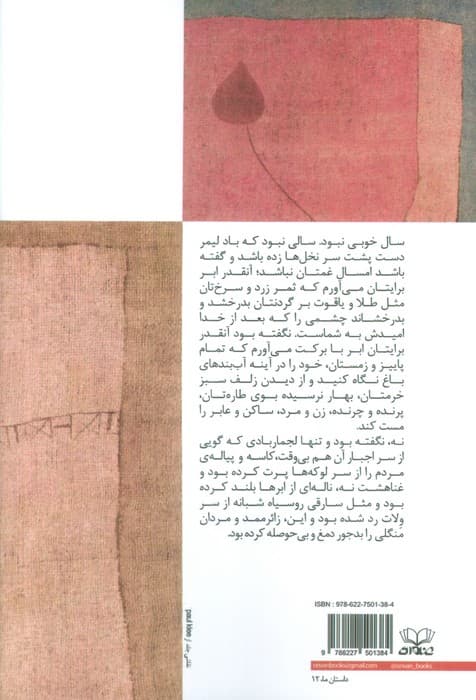 سال خوبی نبود. سالی نبود که باد لیمر
دست پشت سر نخل‌ها زده باشد و گفته
باشد امسال غمتان نباشد؛ آنقدر ابر
برایتان می‌آورم که ثمر زرد و سرخ‌تان
مثل طلا و یاقوت بر گردنتان بدرخشد و
بدرخشاند چشمی را که بعد از خدا
امیدش به شماست. نگفته بود آنقدر
برایتان ابر با برکت می‌آورم که تمام
پاییز و زمستان، خود را در آینه آب‌بندهای
باغ نگاه کنید و از دیدن زلف سبز
خرمتان، بهار نرسیده بوی طاره‌تان،
پرنده و چرنده، زن و مرد، ساکن و عابر را
مست کند.
نه، نگفته بود و تنها لجماربادی که گویی
از سر اجبار آن هم بی‌وقت، کاسه و پیاله‌ی
مردم را از سر لوکه‌ها پرت کرده بود و
غناهشت نه، ناله‌ای از ابرها بلند کرده
بود و مثل سارقی روسیاه شبانه از سر
ولات رد شده بود و این، زائرممد و مردان
منگلی را بدجور دمغ و بی‌حوصله کرده بود.
نقاشی جلد از paul klee
ISBN : 978-622-7501-38-4
9 786227 501384
داستان ما، ۱۲